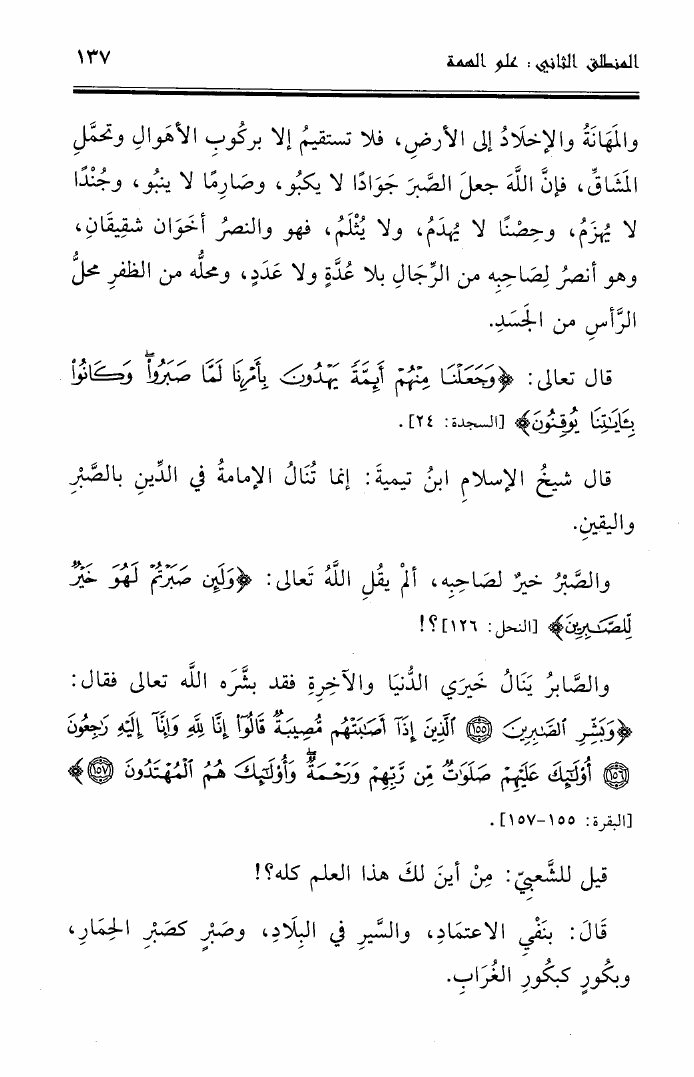 المنطلق الثاني: علو الهمة ١٣٧
والمَهَانَةُ والإخلَادُ إلى الأرضِ، فلا تستقيمُ إلا بركُوبِ الأهَوالِ وتحمَّلِ
المَشَاقِّ، فإنَّ اللَّهَ جعلَ الصَّبرَ جَوَادًا لا يكبُو، وصَارِمًا لا ينبُو، وجُنْدًا
لا يُهزَمُ، وحِصْنًا لا يُهدَمُ، ولا يُثْلَمُ، فهو والنصرُ أخَوَان شقِيقَانِ،
وهو أنصرُ لِصَاحبِه من الرِّجَالِ بلا عُدَّةٍ ولا عَدَدٍ، ومحلُّه من الظفرِ محلُّ
الرَّأسِ من الجَسَدِ.
قال تعالى: ﴿وَجَعَلْنَا مِنْهُمْ أَئِمَّةً يَهْدُونَ بِأَمْرِنَا لَمَّا صَبَرُواْ ۖ وَكَانُواْ
بِـَٔايَٰتِنَا يُوقِنُونَ﴾ [السجدة: ٢٤].
قال شيخُ الإسلامِ ابنُ تيميةَ: إنما تُنَالُ الإمامةُ في الدِّينِ بالصَّبْرِ
واليقينِ.
والصَّبْرُ خيرٌ لصَاحبِه، ألمْ يقُلِ اللَّهُ تَعالى: ﴿وَلَئِن صَبَرْتُمْ لَهُوَ خَيْرٌ
لِّلصَّٰبِرِينَ﴾ [النحل: ١٢٦]؟!
والصَّابرُ يَنَالُ خَيرَي الدُّنيَا والآخِرةِ فقد بشَّرَه اللَّه تعالى فقال:
﴿وَبَشِّرِ ٱلصَّٰبِرِينَ ١٥٥ ٱلَّذِينَ إِذَآ أَصَٰبَتْهُم مُّصِيبَةٌ قَالُوٓاْ إِنَّا لِلَّهِ وَإِنَّآ إِلَيْهِ رَٰجِعُونَ
١٥٦ أُوْلَٰٓئِكَ عَلَيْهِمْ صَلَوَٰتٌ مِّن رَّبِّهِمْ وَرَحْمَةٌ ۖ وَأُوْلَٰٓئِكَ هُمُ ٱلْمُهْتَدُونَ ١٥٧﴾
[البقرة: ١٥٥-١٥٧].
قيل للشَّعبِيّ: مِنْ أينَ لكَ هذا العلم كله؟!
قَالَ: بنَفْيِ الاعتمَادِ، والسَّيرِ في البِلَادِ، وصَبْرٍ كصَبْرِ الحِمَارِ،
وبكُورٍ كبكُورِ الغُرَابِ.